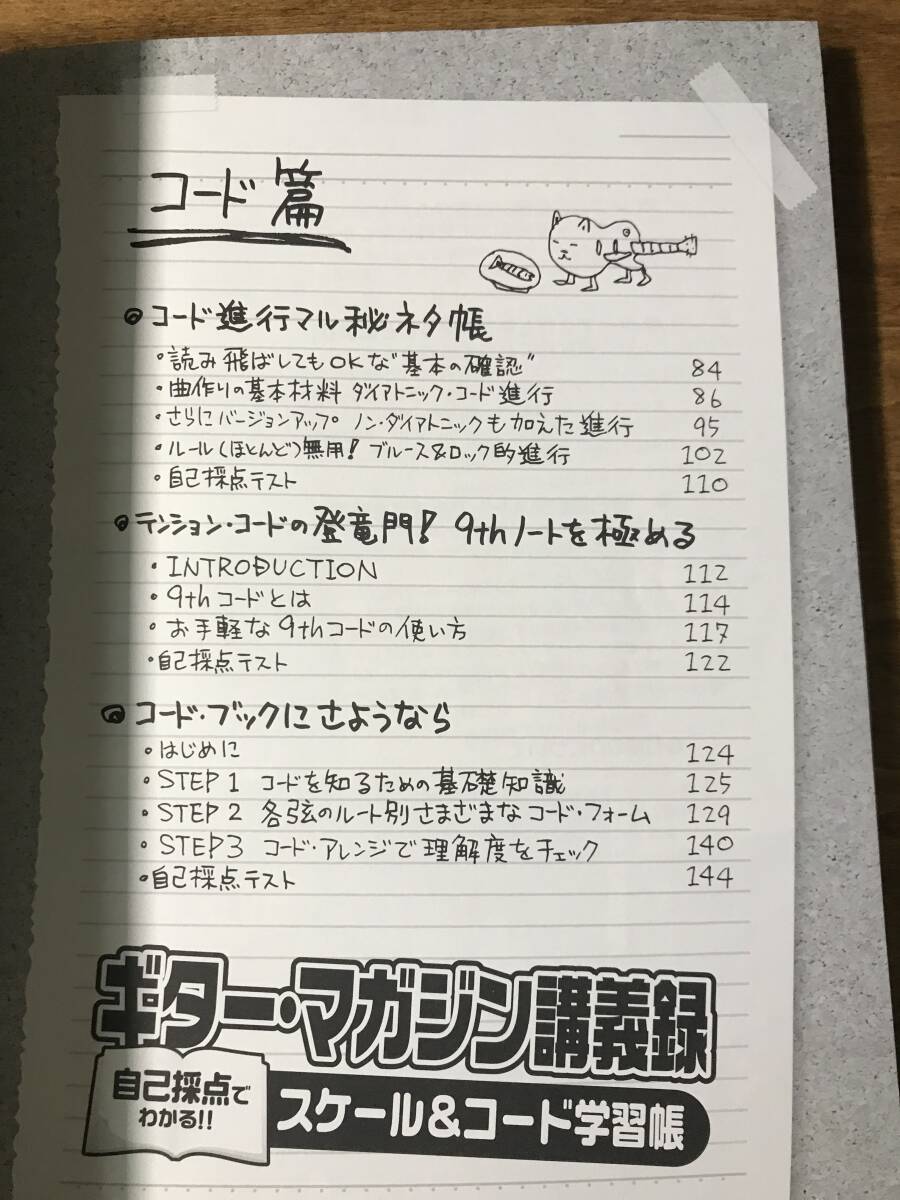 コード篇
◎コード進行マル秘ネタ帳
・読み飛ばしてもOKな“基本の確認” 84
・曲作りの基本材料 ダイアトニック・コード進行 86
・さらにバージョンアップ ノン・ダイアトニックも加えた進行 95
・ルール(ほとんど)無用! ブルース&ロック的進行 102
・自己採点テスト 110
◎テンション・コードの登竜門! 9thノートを極める
・INTRODUCTION 112
・9thコードとは 114
・お手軽な9thコードの使い方 117
・自己採点テスト 122
◎コード・ブックにさようなら
・はじめに 124
・STEP1 コードを知るための基礎知識 125
・STEP2 各弦のルート別さまざまなコード・フォーム 129
・STEP3 コード・アレンジで理解度をチェック 140
・自己採点テスト 144
ギター・マガジン講義録
自己採点で
わかる!!
スケール&コード学習帳